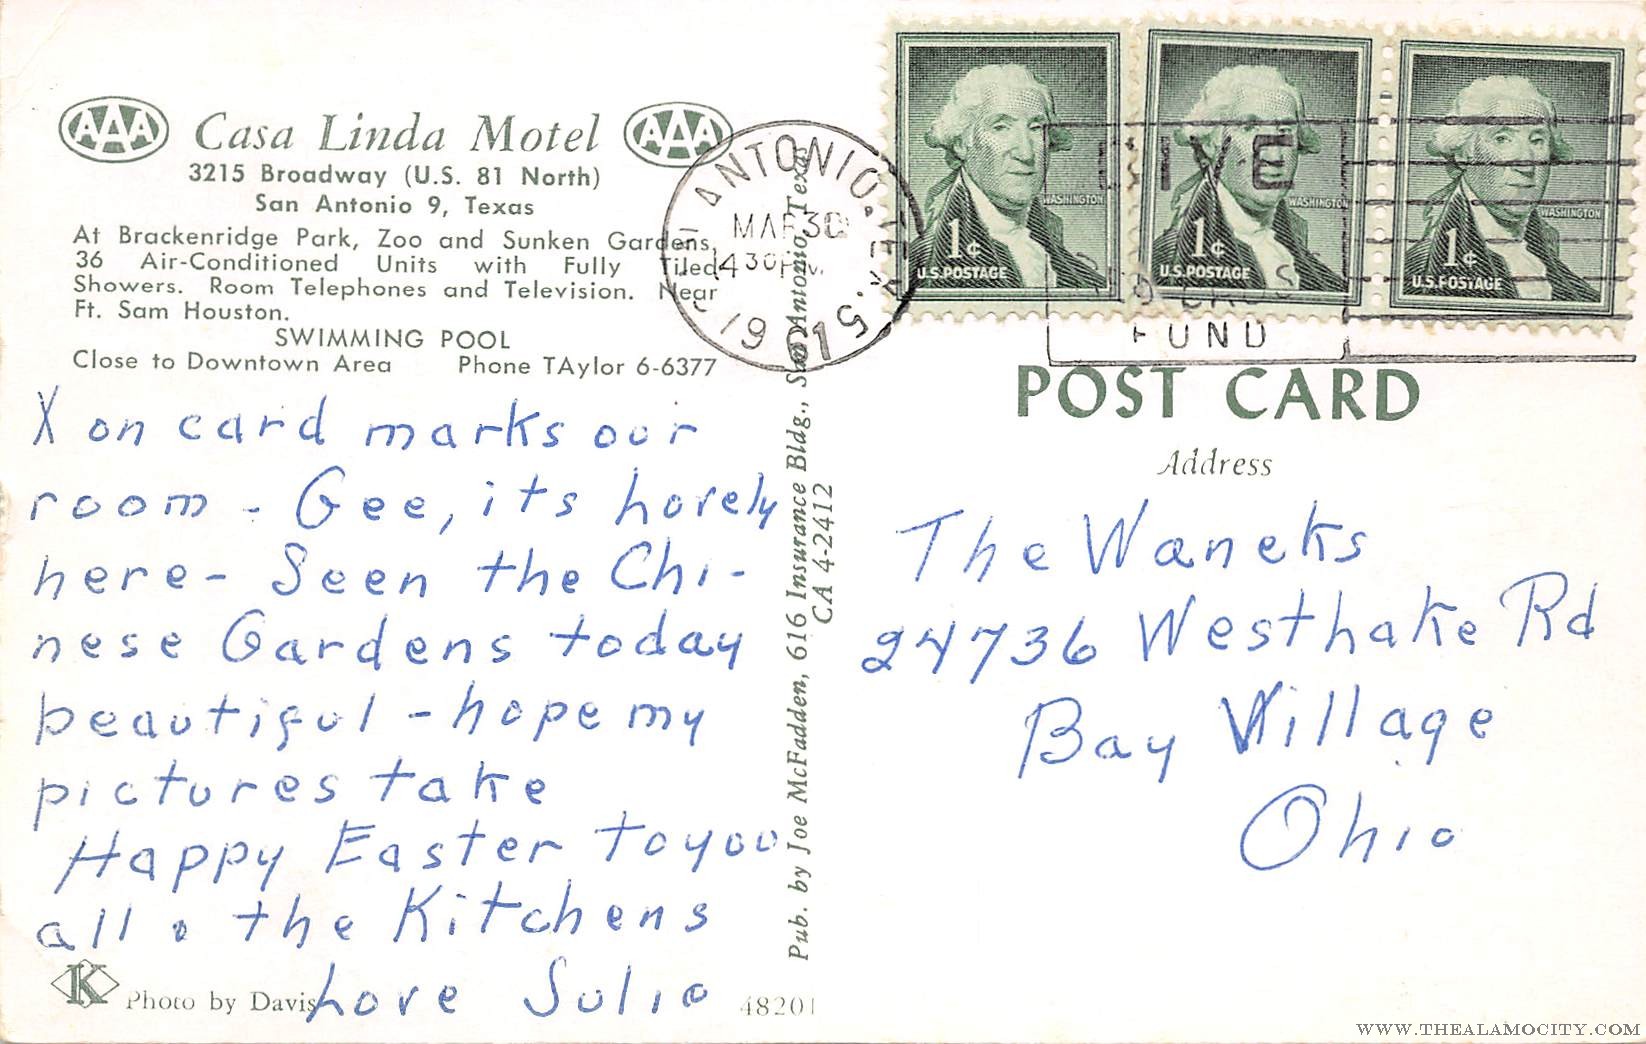 AAA Casa Linda Motel AAA
3215 Broadway (U.S. 81 North)
San Antonio 9, Texas
At Brackenridge Park, Zoo and Sunken Gardens,
36 Air-Conditioned Units with Fully Tiled
Showers. Room Telephones and Television. Near
Ft. Sam Houston.
SWIMMING POOL
Close to Downtown Area Phone TAylor 6-6377
X on card marks our
room - Gee, its lovely
here - Seen the Chi-
nese Gardens today
beautiful - hope my
pictures take
Happy Easter to you
all & the Kitchens
Love Julie
K Photo by Davis
48201
Pub. by Joe McFadden, 616 Insurance Bldg., San Antonio, Texas
CA 4-2412
SAN ANTONIO, TEX.
MAR 30
4 30 PM
1961
GIVE
FUND
WASHINGTON
1¢
U.S. POSTAGE
WASHINGTON
1¢
U.S. POSTAGE
WASHINGTON
1¢
U.S. POSTAGE
POST CARD
Address
The Waneks
24736 Westlake Rd
Bay Village
Ohio
WWW.THEALAMOCITY.COM